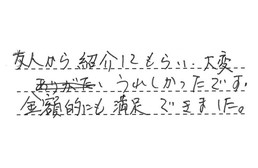 友人から紹介してもらい、大変
うれしかったです。
金額的にも満足できました。